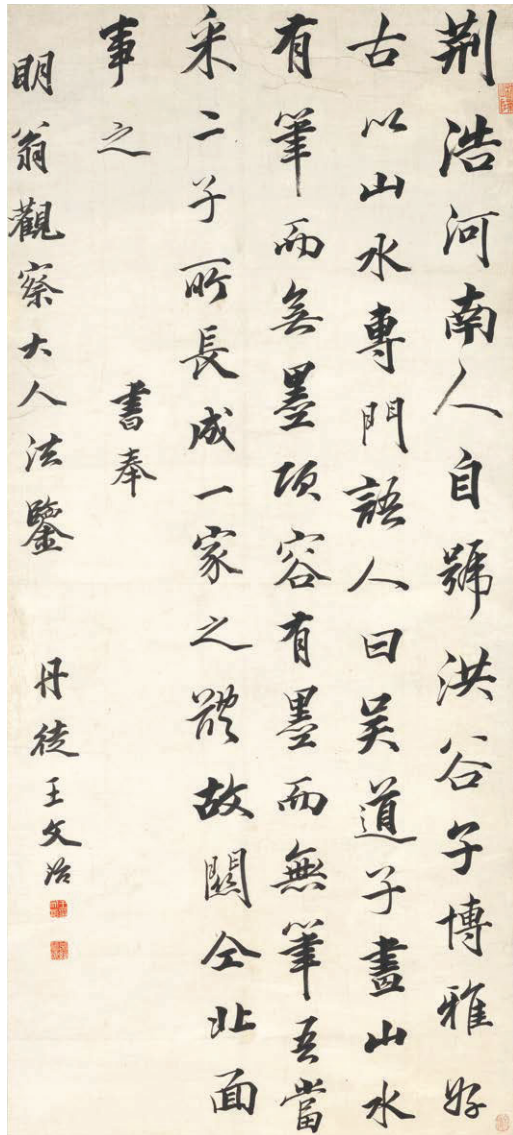 荆浩河南人自號洪谷子博雅好
古以山水專門語人曰吴道子畫山水
有筆而無墨項容有墨而無筆吾當
采二子所長成一家之體故關仝北面
事之
書奉
明翁觀察大人法鑒
丹徒王文治